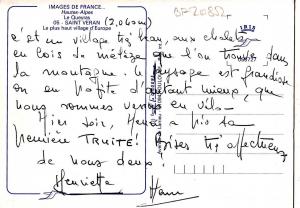 IMAGES DE FRANCE...
Hautes-Alpes
Le Queyras
05 - SAINT VERAN (2.040m)
Le plus haut village d'Europe
C'est un village très beau, aux chalets
en bois de mélèze que l'on trouve dans
la montagne. Le paysage est grandiose
on en profite d'autant mieux, que
nous sommes venus en vélo -
Hier soir, a pris sa
première TRUITE!
Bises très affectueuses
de nous deux.
Henriette